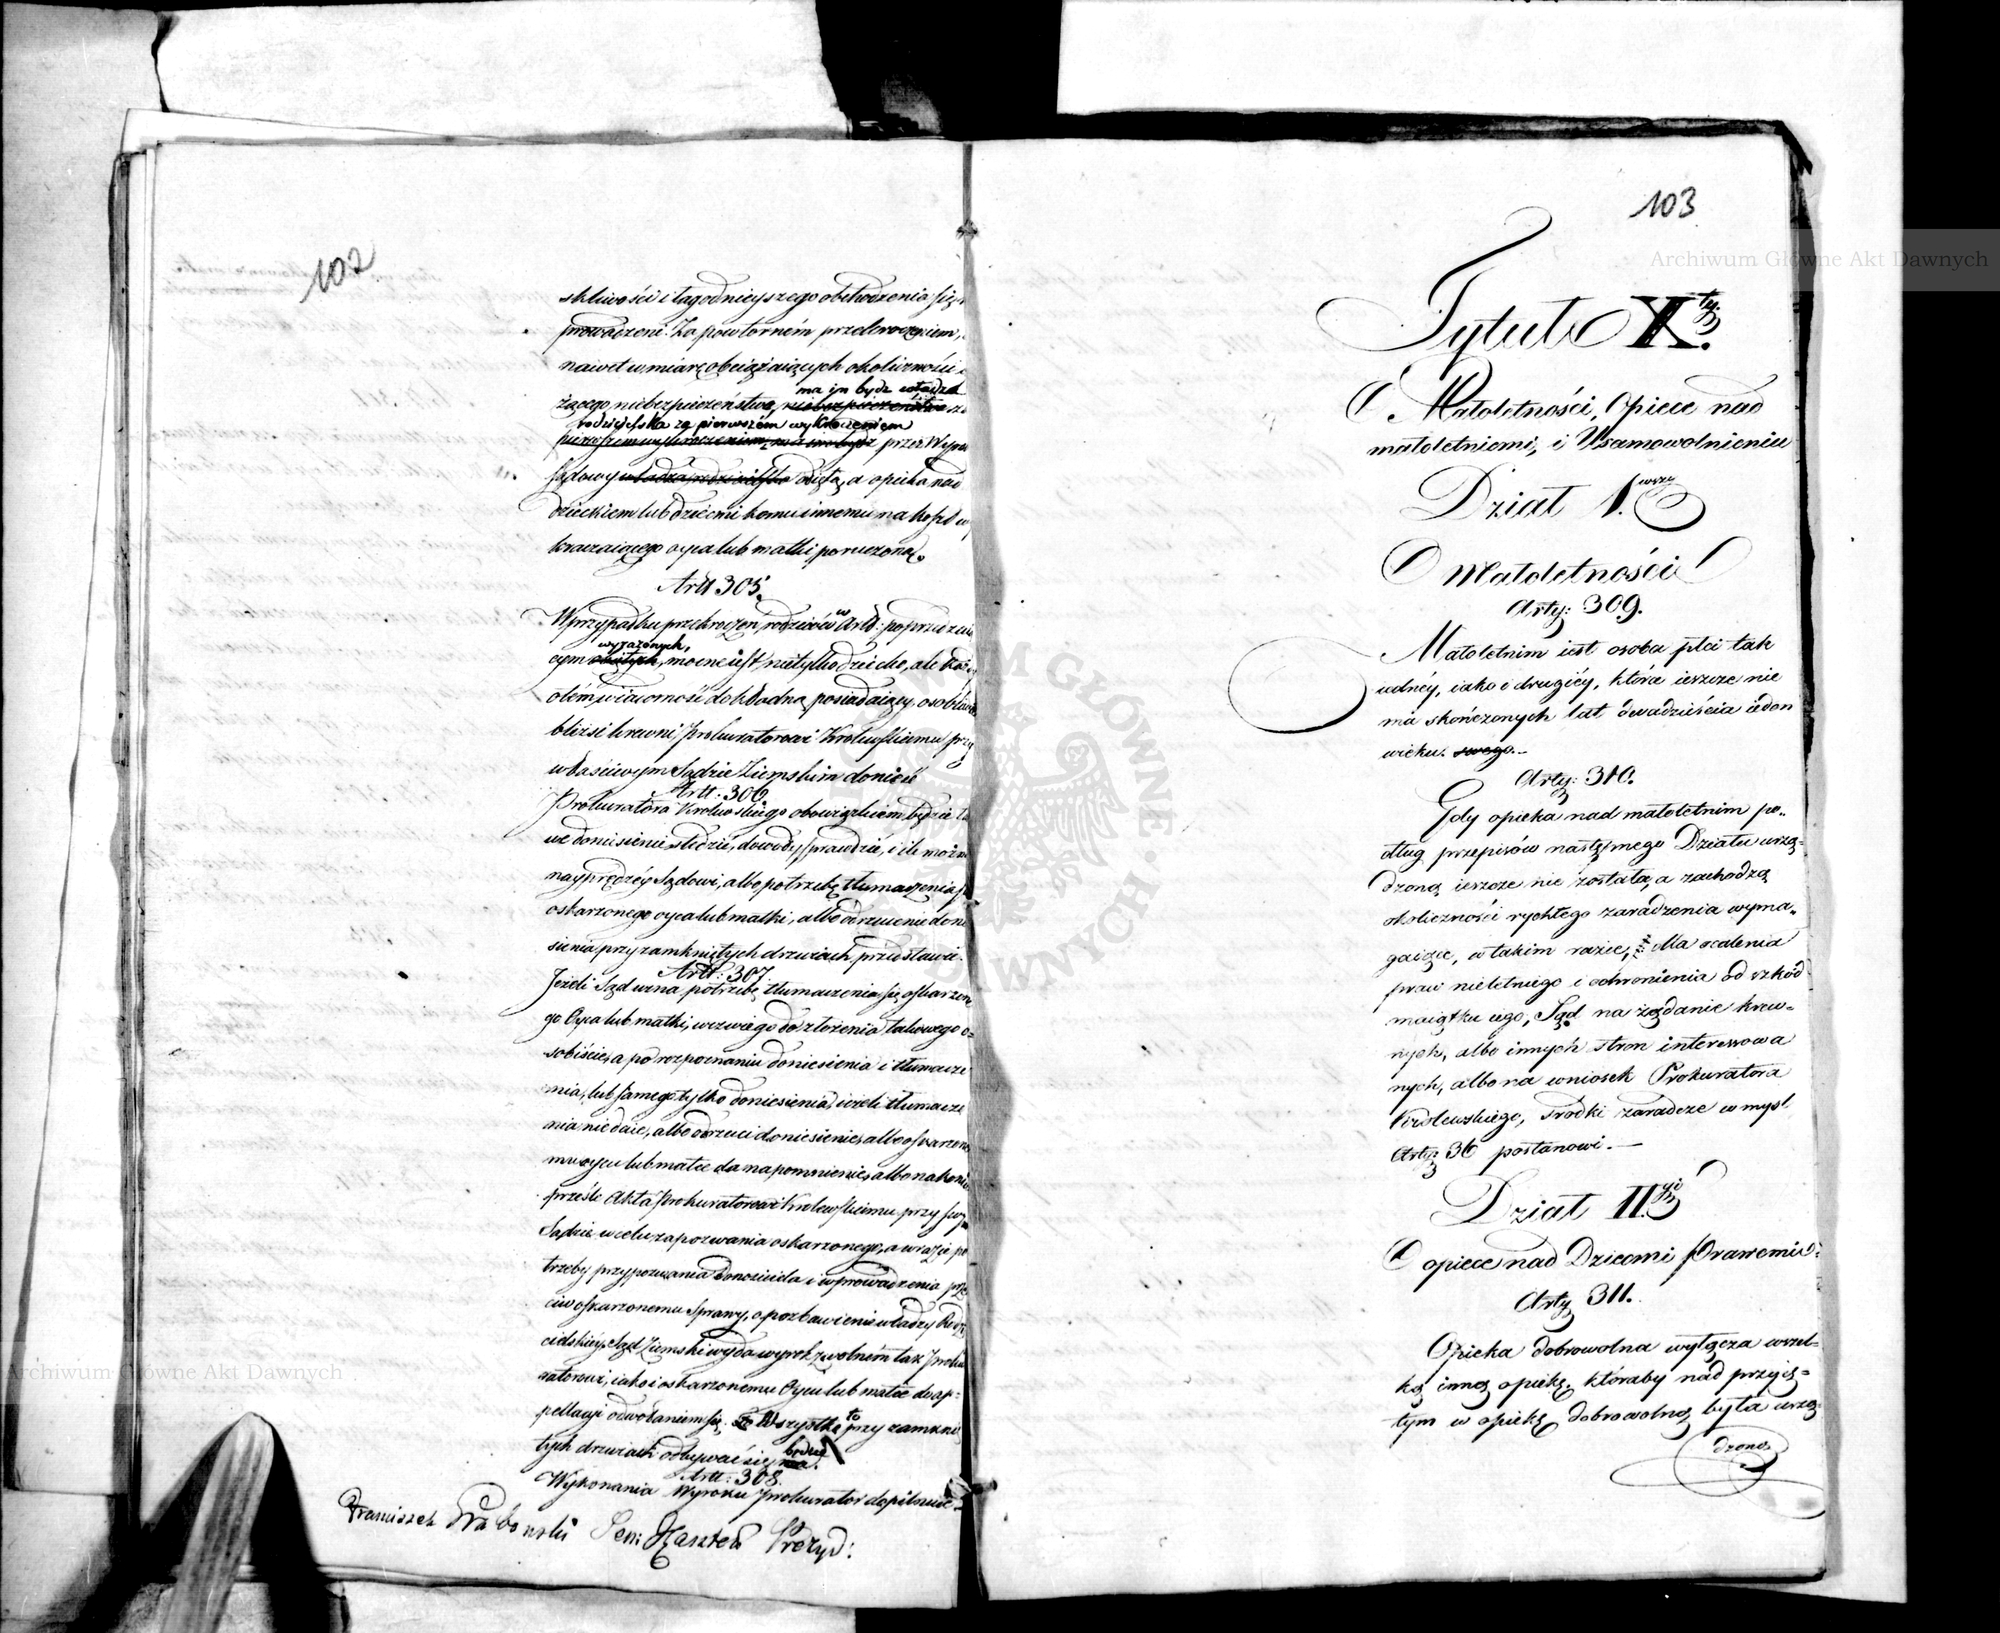 102
skliwości i łagodnieyszego obchodzenia się
prowadzeni. Za powtorném przekroczeniem,
nawet w miarę obciążaiących okoliczności
żącego niebezpieczeństwa, niebezpieczeństwa
ma im bydź władza
rodzicielska za pierwszém wykroczeniem
pierwszem wykroczeniem, ma im bydź przez Wyrok
Sądowy władza rodzicielska odięta, a opieka nad
dzieckiem lub dziećmi komu innemu na koszt wy
kraczaiącego oyca lub matki, poruczona.
Artł 305.
W przypadku przekroczeń rodziców w Artł: poprzedzaią
wyrażonych,
cym, mocne iest nietylko dziecko, ale każdy
o tém wiadomość dokładną posiadaiący, osobliwie
bliżsi krewni, Prokuratorowi Królewskiemu przy
właściwym Sądzie Ziemskim donieść
Artł. 306.
Prokuratora Królewskiego obowiązkiem będzie ta
we doniesienie śledzić, dowody sprawdzić, i ile możn
nayprędzéy Sądowi, albo potrzebę tłumaczenia s
oskarżonego oyca lub matki, albo odrzucenie donie
sienia przy zamkniętych drzwiach przedstawić.
Artł: 307.
Jeżeli Sąd uzna potrzebę tłumaczenia się oskarżone
go Oyca lub matki, wezwie go do złożenia takowego o-
sobiście, a po rozpoznaniu doniesienia i tłumacze
nia, lub samego tylko doniesienia, ieżeli tłumacze
nia nie daie, albo odrzuci doniesienie, albo oskarżone
mu oycu lub matce da napomnienie, albo nakoniec
prześle Akta Prokuratorowi Królewskiemu przy swym
Sądzie w celu zapozwania oskarżonego, a w razie po
trzeby przypozwania donosiciela i wprowadzenia prze
ciw oskarżonemu Sprawy, o pozbawienie władzy Rodzi
cielskiéy. Sąd Ziemski wyda wyrok, z wolném tak Proku
ratorowi, iako i oskarżonemu Oycu lub matce do ap-
pellacyi odwołaniem się. Wszystko to przy zamknię
tych drzwiach odbywać się ma. będzie
Artł: 308.
Wykonania Wyroku Prokurator dopilnuie.
Franciszek Grabowski Sen: Kasztel Prezyd:
103
Tytuł Xty.
O Małoletności, Opiece nad
małoletniemi, i Usamowolnieniu
Dział I.wszy
O Małoletności
Arty: 309.
Małoletnim iest osoba płci tak
iednéy, iako i drugiéy, która ieszcze nie
ma skończonych lat dwadzieścia ieden
wieku. swego.
Arty: 310.
Gdy opieka nad małoletnim po-
dług przepisów następnego Działu urzą-
dzoną ieszcze nie została, a zachodzą
okoliczności rychłego zaradzenia wyma-
gaiące, w takim razie, dla ocalenia
praw nieletniego i ochronienia od szkód
maiątku iego, Sąd na żądanie krew-
nych, albo innych stron interessowa
nych, albo na wniosek Prokuratora
Królewskiego, środki zaradcze w myśl
Arty: 36 postanowi.
Dział II.gi
O opiece nad Dziećmi Prawemi
Arty 311.
Opieka dobrowolna wyłącza wszel-
ką inną opiekę, któraby nad przyię-
tym w opiekę dobrowolną była urzą-
dzoną
Archiwum Główne Akt Dawnych
Archiwum Główne Akt Dawnych